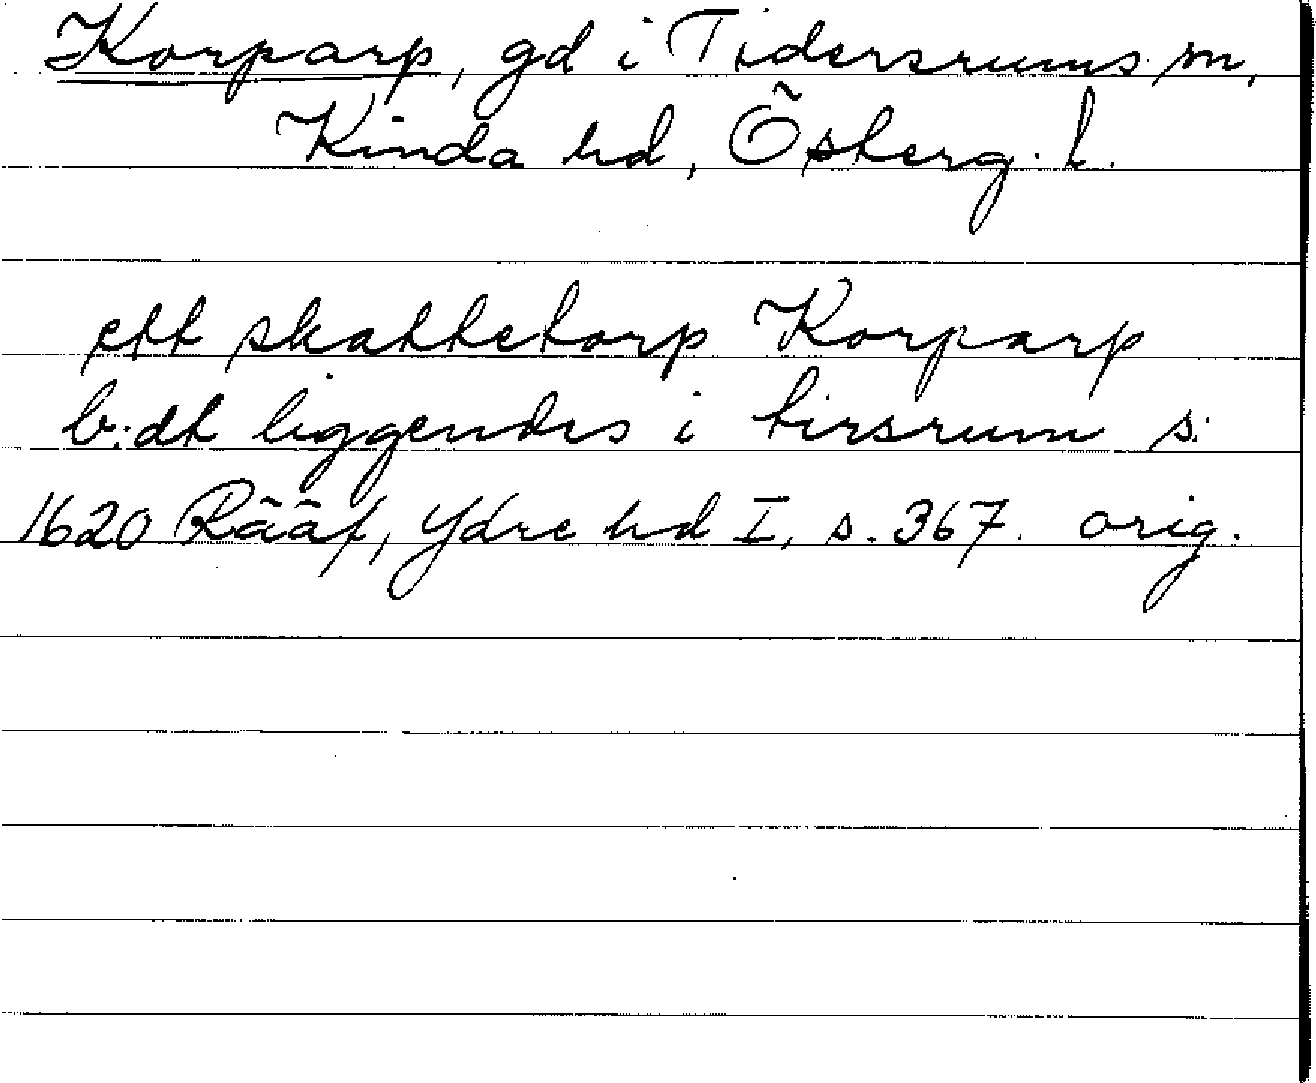 Korparp, gd i Tidersrums sn,
Kinda hd, Österg. l.
ett skattetorp Korparp
b:dt liggendes i tirsrum s:
1620 Rääf, Ydre hd I, s. 367. orig.